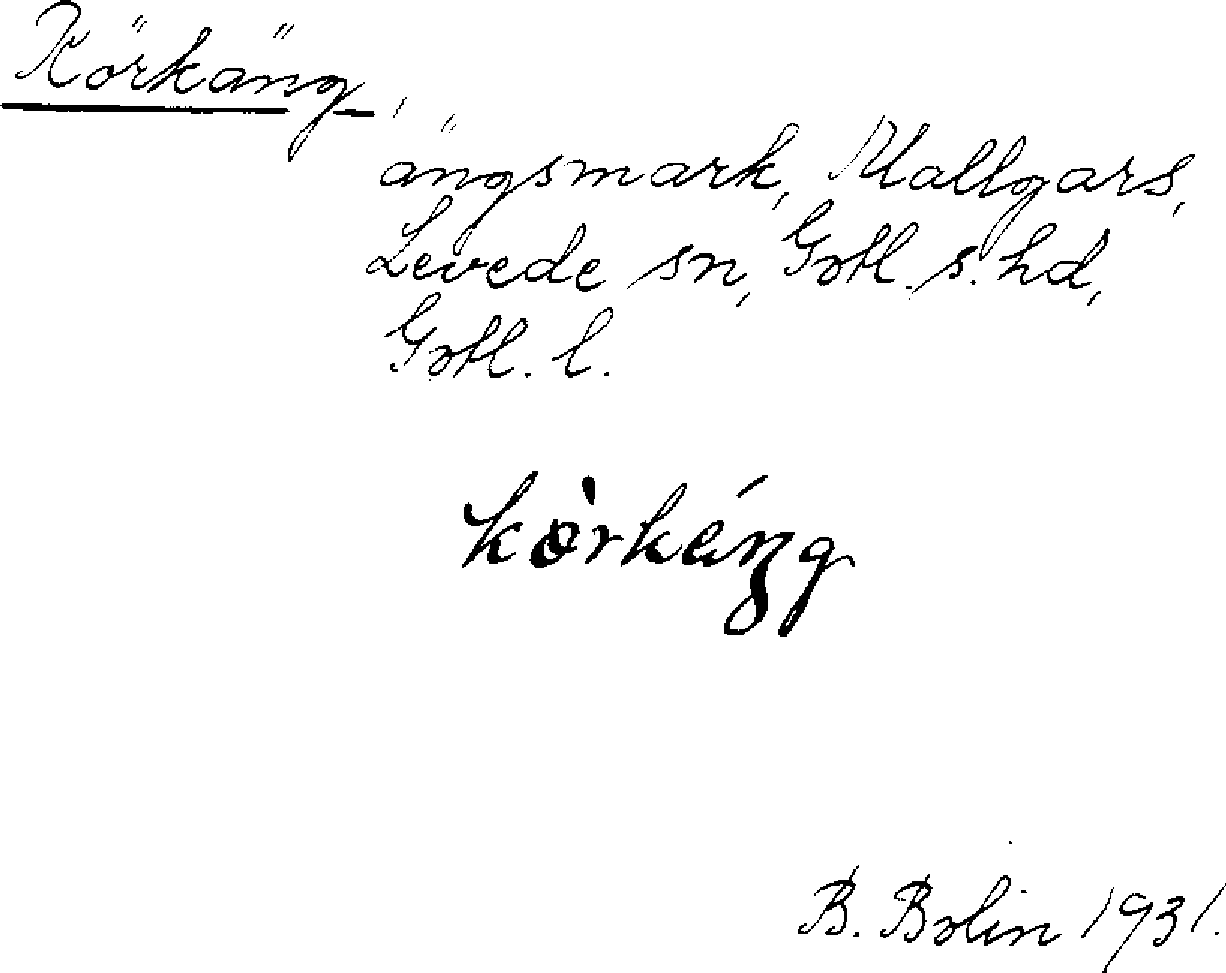 Körkäng,
ängsmark, Mallgars,
Levede sn, Gotl. s. hd,
Gotl. l.
kòrkéŋg
B. Bolin 1931.